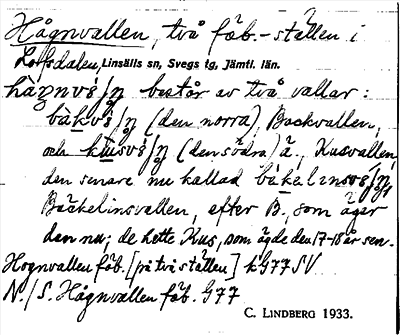 Hågnvallen, två fäb.-ställen i
Lofsdalen, Linsälls sn, Svegs tg, Jämtl. län.
består av två vallar:
(den norra), Backvallen,
och (den södra) ä, Kusvallen,
den senare nu kallad
Bäckelinsvallen, efter B., som äger
den nu; de hette Kus, som ägde den 17-18 år sen.
Hognvallen fäb. [på två ställen] k G77 SV
N./S. Hågnvallen fäb. G77
C. LINDBERG 1933.